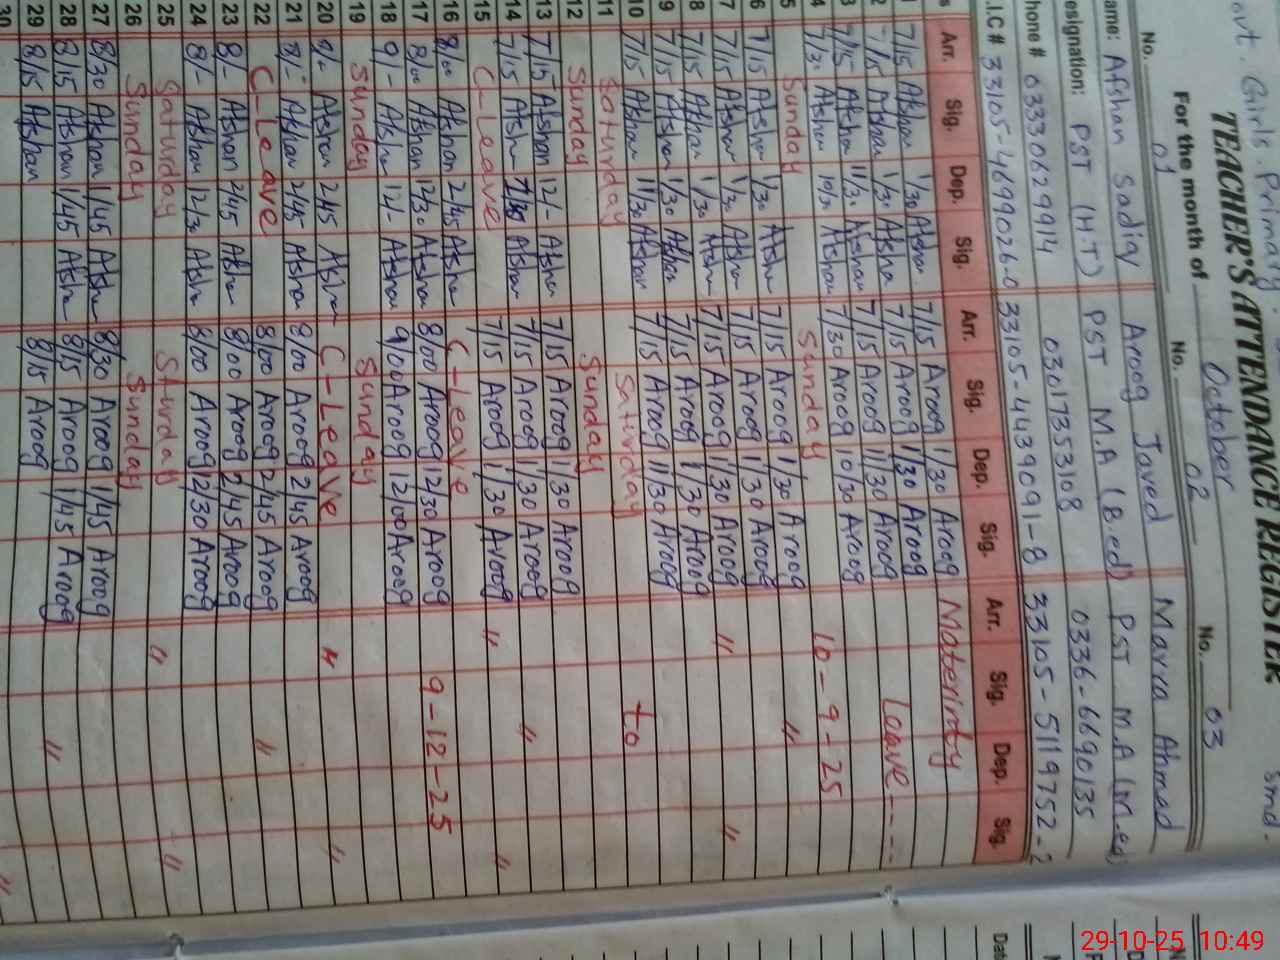 ovt. Girls Primary
smd.
TEACHER'S ATTENDANCE REGISTER
For the month of October
No. 01 No. 02 No. 03
ame: Afshan Sadiq Aroog Javed Marra Ahmed
esignation: PST (H.T) PST M.A (B.ed) PST M.A (M.ed)
hone # 03330629914 03017353108 0336-6690135
.I.C # 33105-4699026-0 33105-4439091-8 33105-5119752-2
s Arr. Sig. Dep. Sig. Arr. Sig. Dep. Sig. Arr. Sig. Dep. Sig.
1 7/15 Afshan 1/30 Afshan 7/15 Aroog 1/30 Aroog Materinty
2 7/15 Afshan 1/30 Afsha 7/15 Aroog 1/30 Aroog Leave----
3 7/15 Afshan 11/30 Afshan 7/15 Aroog 11/30 Aroog
4 7/30 Afshan 10/30 Afshan 7/30 Aroog 10/30 Aroog 10-9-25
5 Sunday Sunday "
6 7/15 Afshan 1/30 Afsha 7/15 Aroog 1/30 Aroog
7 7/15 Afshan 1/30 Afshan 7/15 Aroog 1/30 Aroog " "
8 7/15 Afshan 1/30 Afsha 7/15 Aroog 1/30 Aroog
9 7/15 Afshan 1/30 Afshan 7/15 Aroog 1/30 Aroog
10 7/15 Afshan 11/30 Afshan 7/15 Aroog 11/30 Aroog to
11 Saturday Saturday
12 Sunday Sunday
13 7/15 Afshan 12/- Afshan 7/15 Aroog 1/30 Aroog
14 7/15 Afshan Afshan 7/15 Aroog 1/30 Aroog "
15 C-Leave 7/15 Aroog 1/30 Aroog " "
16 8/00 Afshan 2/45 Afsha C-Leave
17 8/00 Afshan 12/30 Afshan 8/00 Aroog 12/30 Aroog 9-12-25
18 9/- Afshan 12/- Afshan 9/00 Aroog 12/00 Aroog
19 Sunday Sunday
20 Afshan 2/45 Afshan C-Leave " "
21 8/- Afshan 2/45 Afshan 8/00 Aroog 2/45 Aroog
22 C-Leave 8/00 Aroog 2/45 Aroog "
23 8/- Afshan 2/45 Afshan 8/00 Aroog 2/45 Aroog
24 8/- Afshan 12/30 Afshan 8/00 Aroog 12/30 Aroog
25 Saturday Saturday " "
26 Sunday Sunday
27 8/30 Afshan 1/45 Afshan 8/30 Aroog 1/45 Aroog
28 8/15 Afshan 1/45 Afshan 8/15 Aroog 1/45 Aroog "
29 8/15 Afshan 8/15 Aroog
30 "
Date
29-10-25 10:49